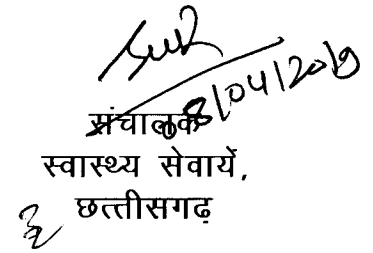 08/04/2019
संचालक
स्वास्थ्य सेवायें,
छत्तीसगढ़